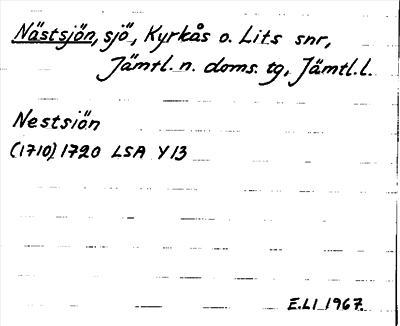 Nästsjön, sjö, Kyrkås o. Lits snr,
Jämtl. n. doms. tg, Jämtl. l.
Nestsiön
(1710) 1720 LSA Y13
E.LI 1967.